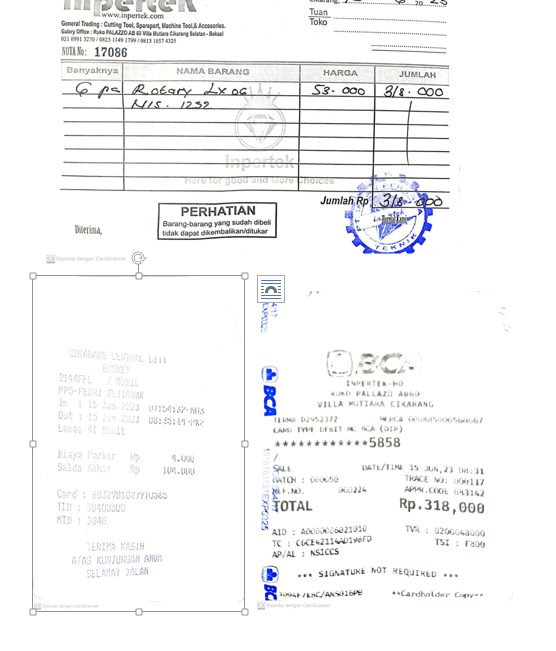 inpertek
www.inpertek.com
General Trading : Cutting Tool, Sparepart, Machine Tool,& Accesories.
Galery Office : Ruko PALAZZO AB 60 Villa Mutiara Cikarang Selatan - Bekasi
021 8991 3270 / 0823 1149 1799 / 0813 1857 4325
NOTA No: 17086
Tuan
Toko
Banyaknya NAMA BARANG HARGA JUMLAH
6 pc Rotary 53.000 318.000
inpertek
Here for good and More Choices
Jumlah Rp 318.000
PERHATIAN
Barang-barang yang sudah dibeli
tidak dapat dikembalikan/ditukar
Diterima,
Hormat Kami
TEKNIK
Dipindai dengan CamScanner
CIKARANG CENTRAL CITY
2144FFL / MOBIL
PPS-FEBRI SETIAWAN
In : 15 Jun 2023
Out : 15 Jun 2023
Lama: 41 Menit
Biaya Parkir Rp 4.000
Saldo Akhir Rp
Card :
TID : 38400300
MID : 3840
TERIMA KASIH
ATAS KUNJUNGAN ANDA
SELAMAT JALAN
Dipindai dengan CamScanner
BCA
INPERTEK-HO
RUKO PALLAZO AB60
VILLA MUTIARA CIKARANG
TERM# D2952372 MERC# 000885000560667
CARD TYPE DEBIT MC BCA (DIP)
************5858
/
SALE DATE/TIME 15 JUN,23 08:31
BATCH : 000050 TRACE NO: 000117
REF.NO. 000224 APPR.CODE 083142
TOTAL Rp.318,000
AID : A0000006021010 TVR : 0200048000
TC : TSI : F800
AP/AL : NSICCS
*** SIGNATURE NOT REQUIRED ***
**Cardholder Copy**
BCA
BCA
Dipindai dengan CamScanner